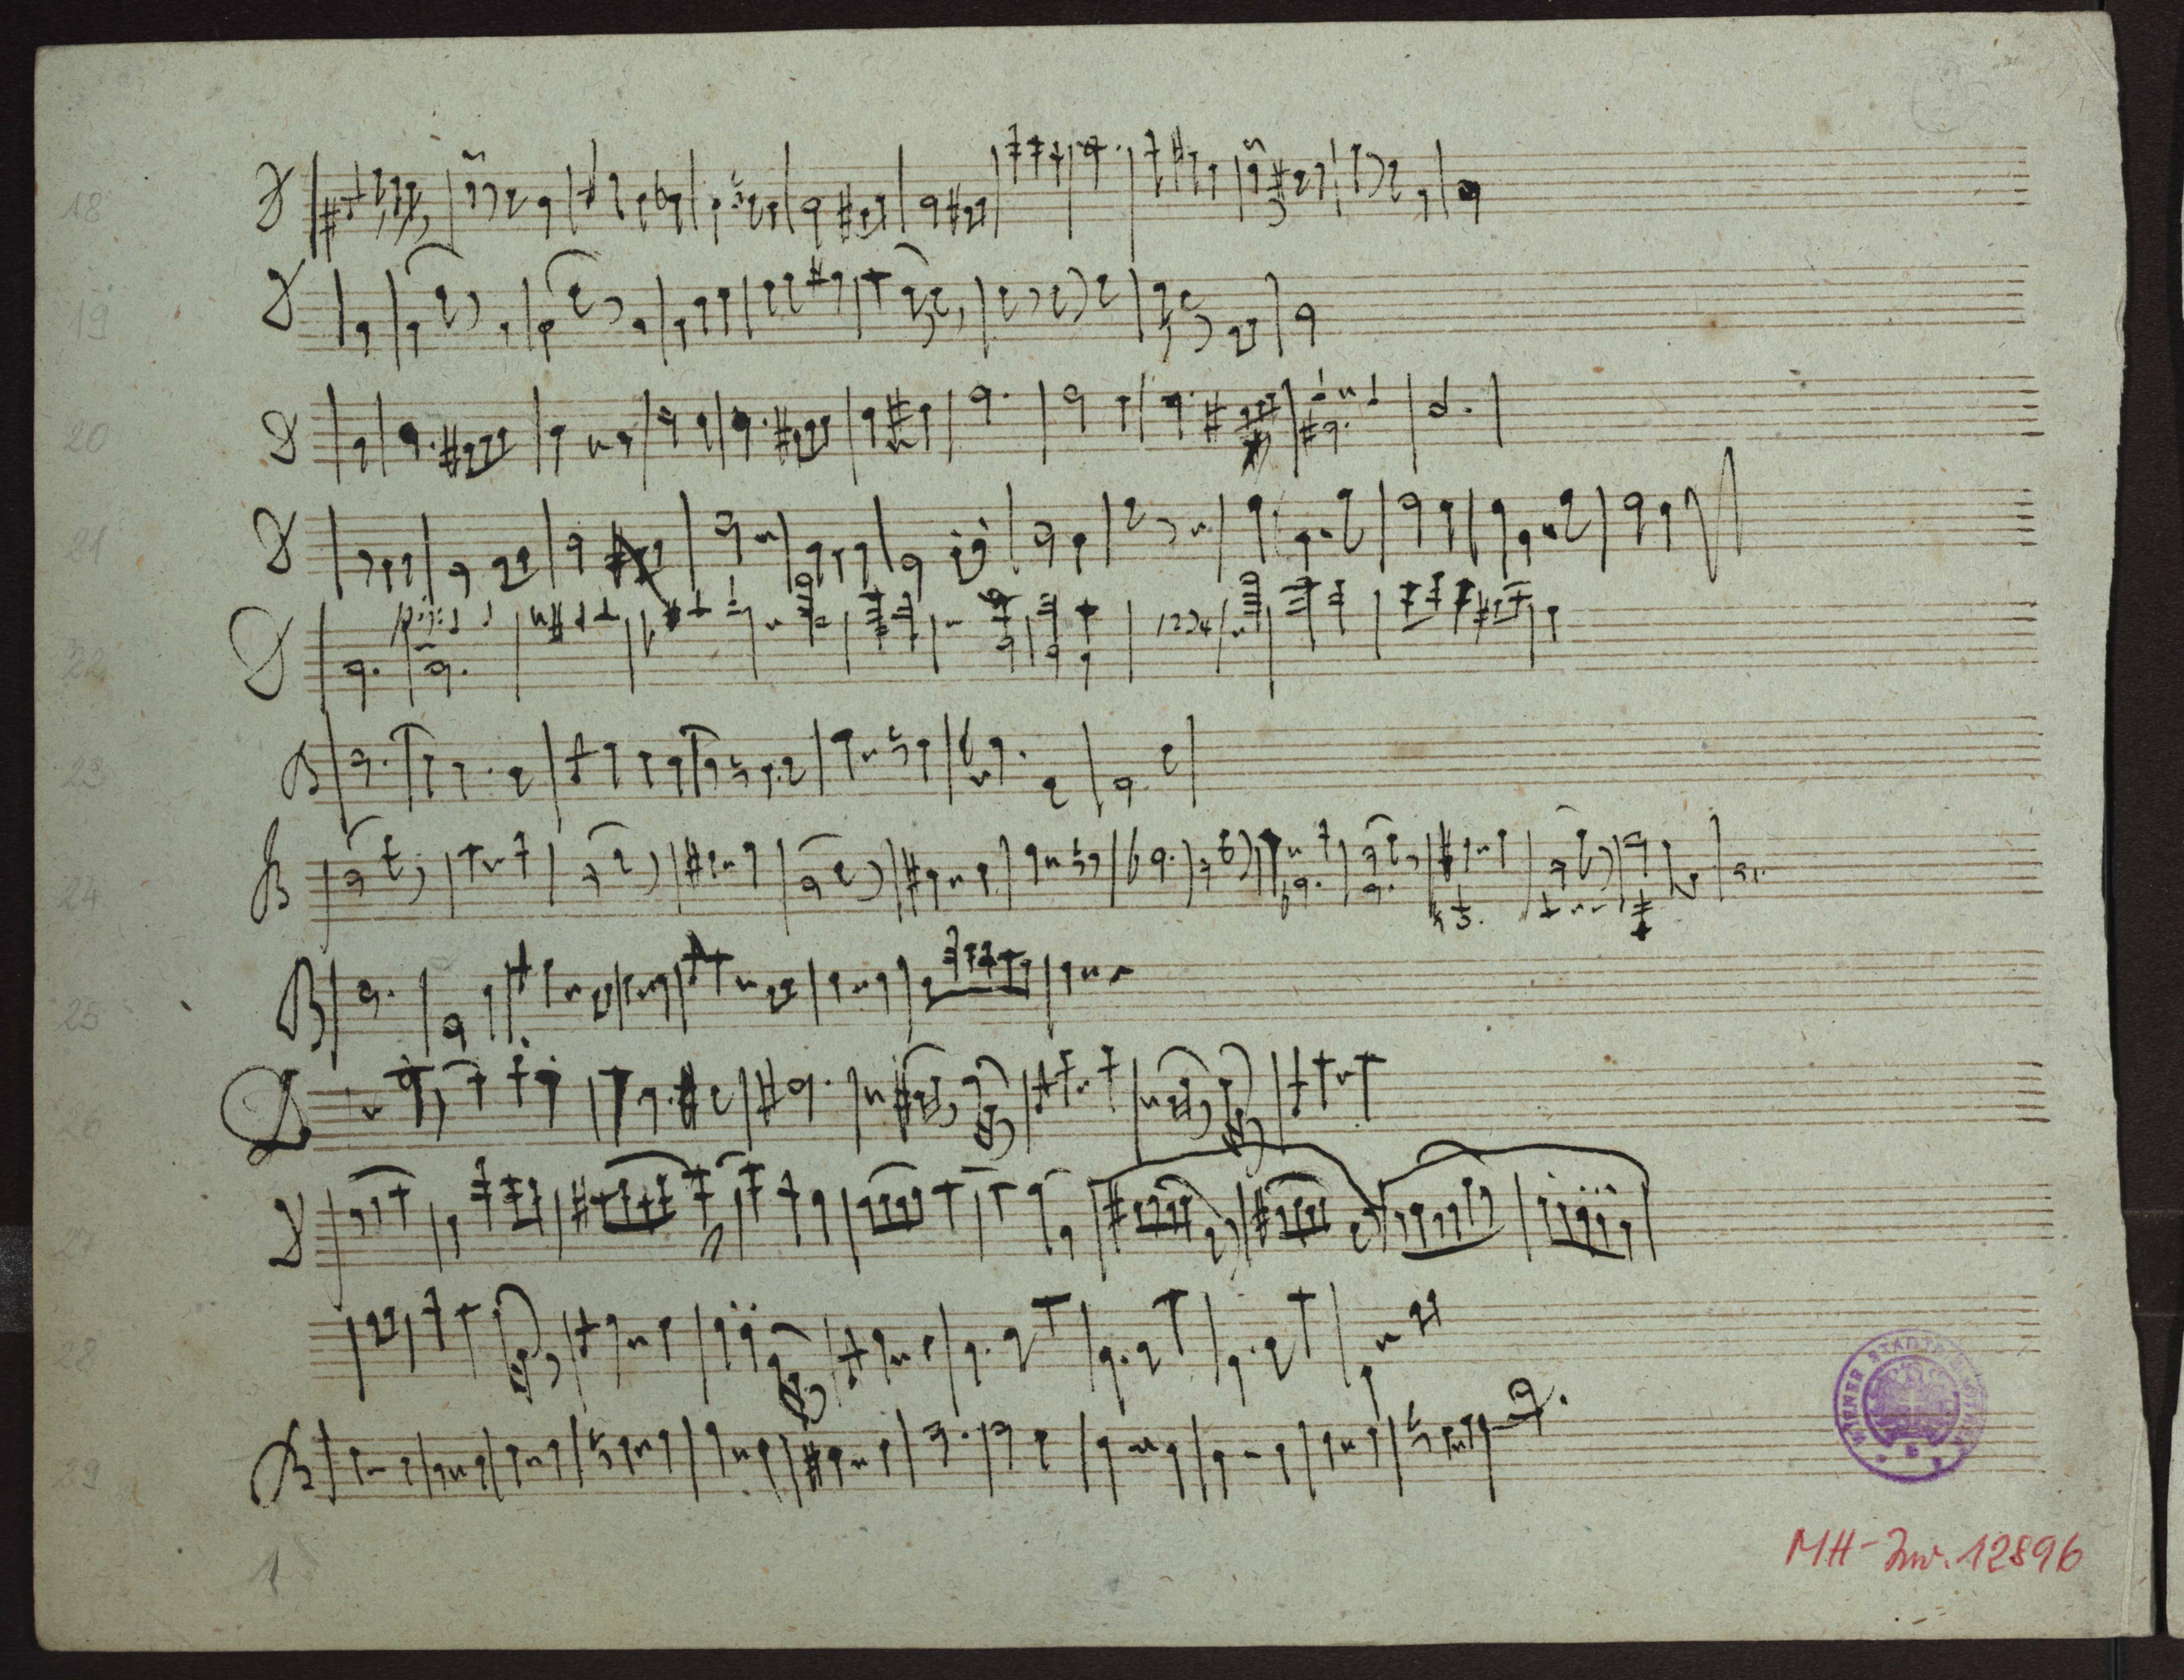 18
19
20
21
pizz:
1234
22
23
24
25
26
27
28
29
1
WIENER STADT
MH-Inv. 12896